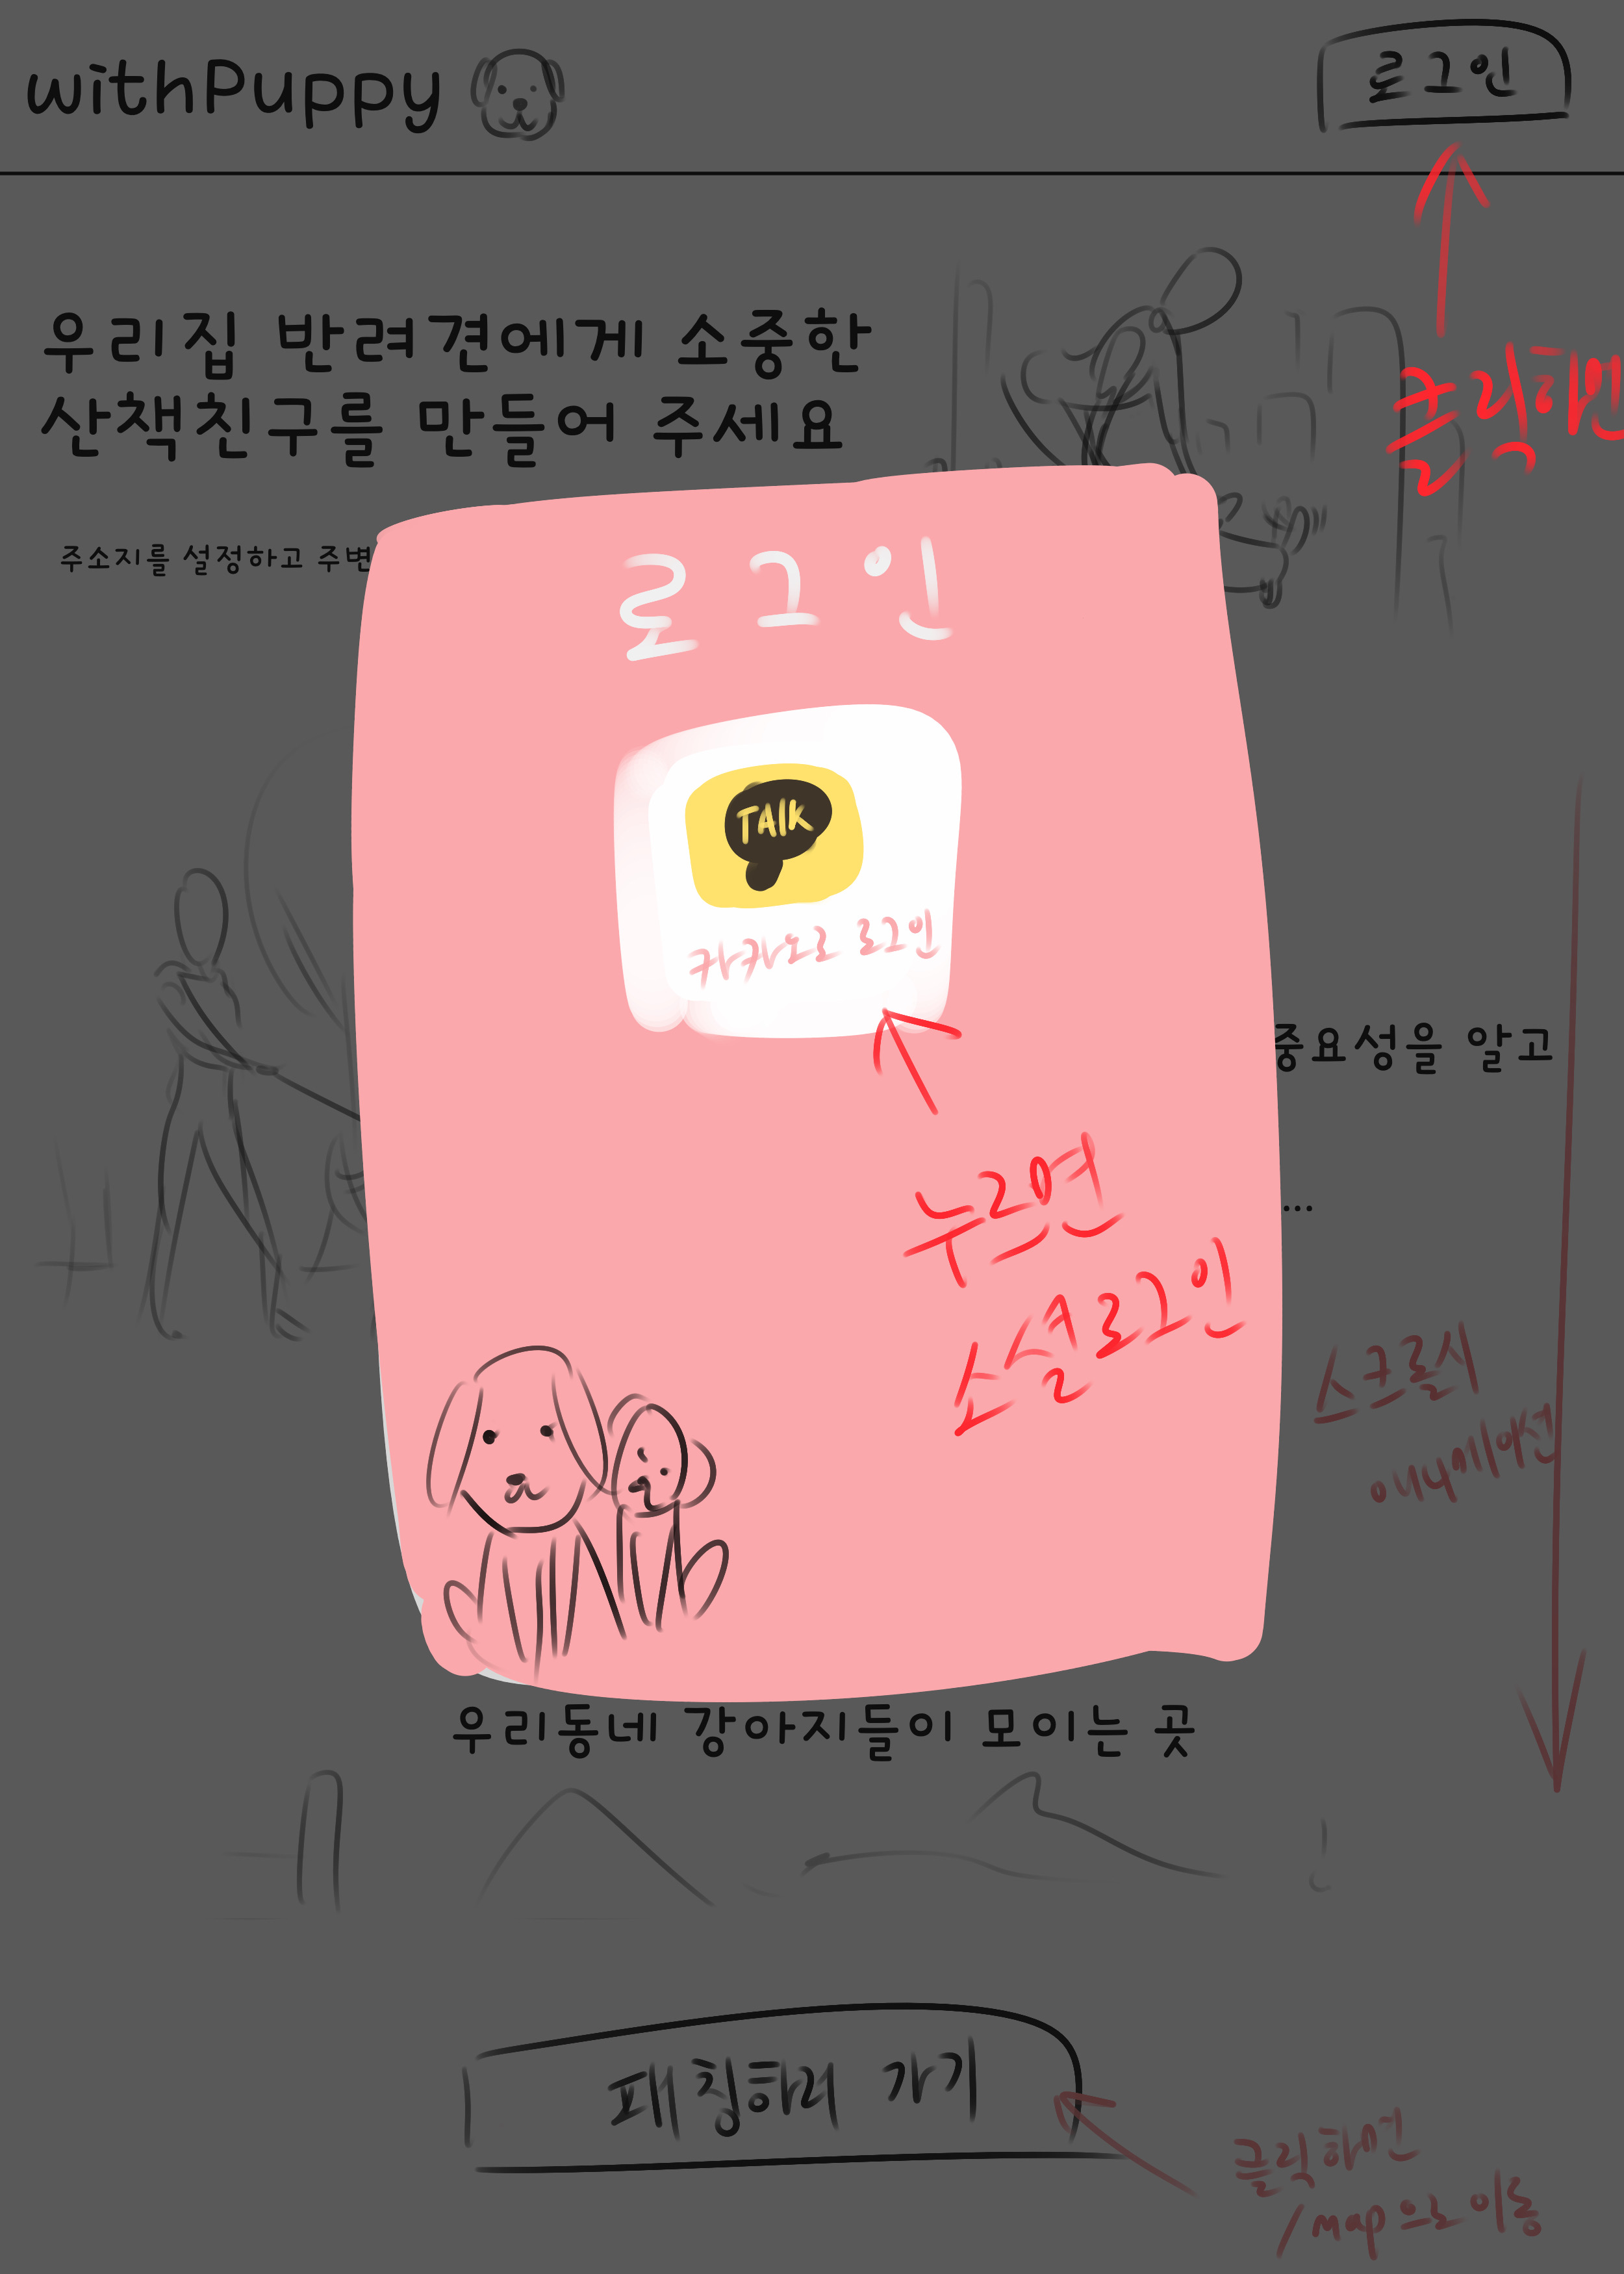 withPuppy
로그인
우리집 반려견에게 소중한
산책친구를 만들어 주세요
클릭해면
주소지를 설정하고 주변
로그인
TALK
카카오로 로그인
중요성을 알고
누르면
소슬로그인
...
스크롤시
애니메이션
우리동네 강아지들이 모이는 곳
퍠 칭해러 가기
클릭해면
/map으로 이동